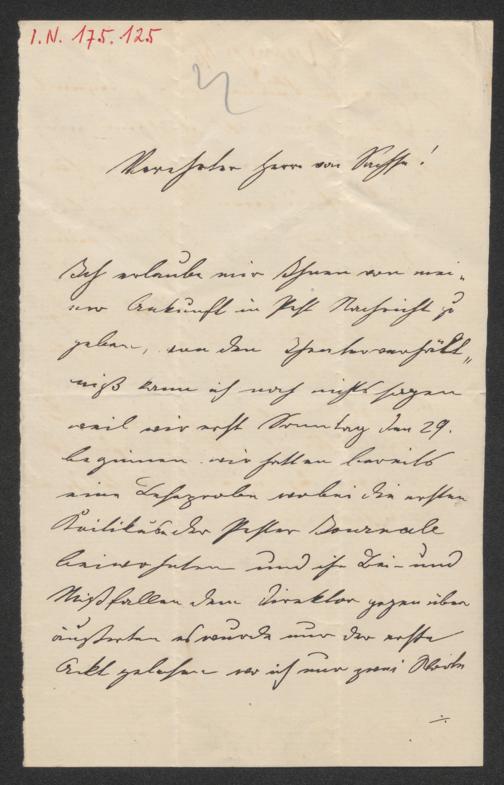 I.N. 175.125
Verehrter Herr von Sachse!
Ich erlaube mir Ihnen von mei„
ner Ankunft in Pest Nachricht zu
geben, von den Theaterverhält„
niß kann ich noch nichts sagen
weil wir erst Sonntag den 29.
beginnen wir hatten bereits
eine Leseprobe wobei die ersten
Kritiker der Pester Journale
beiwohnten und ihr Bei- und
Mißfallen dem Direktor gegenüber
äußerten es wurde nur der erste
Ackt gelesen wo ich nur zwei Worte
./.